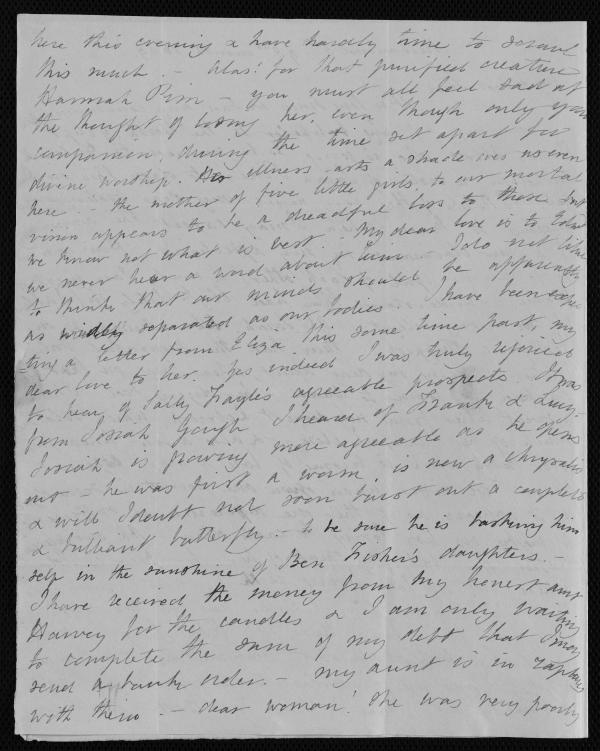 here this evening & have hardly time to scrawl
this much. – Alas! for that purified creature
Hannah Pim – you must all feel sad at
the thought of losing her, even though only your
companion, during the time set apart for
divine worship. Her illness casts a shade over us even
here. – the mother of five little girls, to our mortal
vision appears to be a dreadful loss to them but
we know not what is best. – My dear love is to
we never hear a word about him – I do not like
to think that our minds should be apparently
as widely separated as our bodies. I have been expec
ting a letter from Eliza this some time past, my
dear love to her. Yes indeed I was truly rejoiced
to hear of Sally Fayle's agreeable prospects. It was
from Josiah Gough I heard of Frank & Lucy.
Josiah is growing more agreeable as he opens
out – he was first a worm, is now a chrysalis
& will I doubt not soon burst out a complete
& brilliant butterfly. – to be sure he is basking him
self in the sunshine of Ben Fisher's daughters. –
I have received the money from my honest aunt
Harvey for the candles & I am only waiting
to complete the sum of my debt that I may
send a bank order. – my aunt is in raptures
with them. – dear woman! she was very poorly